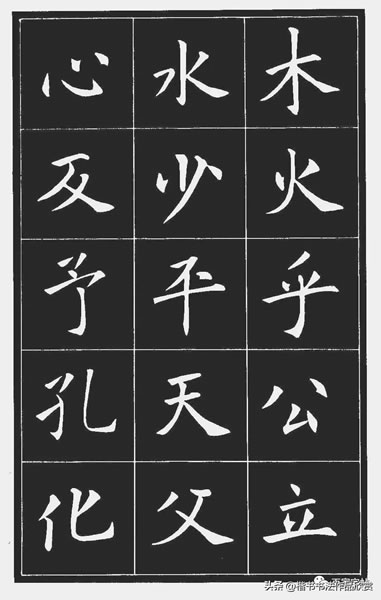 木火乎公立
水少平天父
心反予孔化
头条 @楷书书法作品欣赏